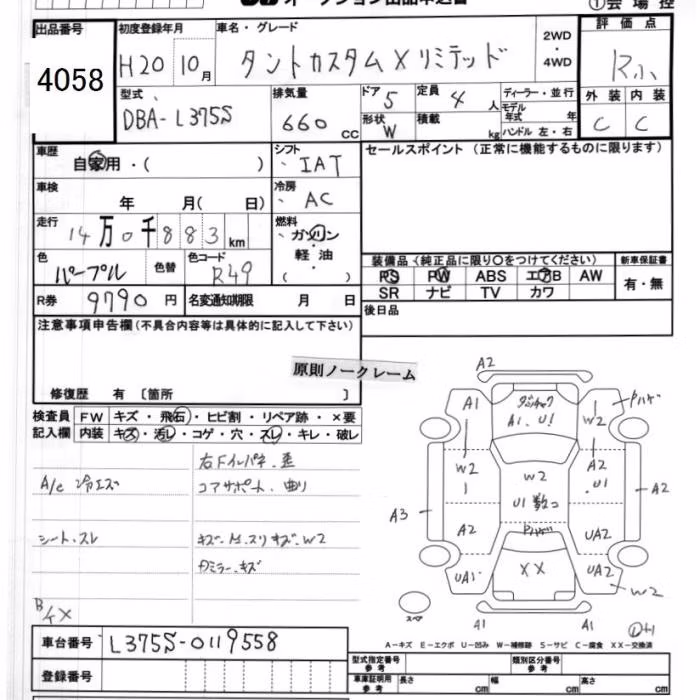 オークション出品申込書 ①会場控
出品番号 初度登録年月 車名・グレード 2WD・4WD 評価点
4058 H20 10月 タントカスタムXリミテッド Rふ
型式 排気量 ドア 5 定員 4人 ディーラー・並行 外装 内装
DBA-L375S 660cc 形状 W 積載 kg モデル年式 年 ハンドル 左・右 C C
車歴 自家用・( ) シフト IAT セールスポイント(正常に機能するものに限ります)
車検 年 月( 日) 冷房 AC
走行 14万0千883km 燃料 ガソリン
軽油
( )
色 パープル 色替 色コード R49 装備品(純正品に限り○をつけてください) 新車保証書
PS PW ABS エアB AW 有・無
R券 9790円 名変通知期限 月 日 SR ナビ TV カワ
注意事項申告欄(不具合内容等は具体的に記入して下さい) 後日品
原則ノークレーム
修復歴 有 〔箇所 〕
検査員記入欄 FW キズ・飛石・ヒビ割・リペア跡・×要
内装 キズ・汚レ・コゲ・穴・スレ・キレ・破レ
右Fインパネ.歪
A/c 冷エズ コアサポート.曲り
シート.スレ キズ・ W2
ミラー.キズ
A2
A1 A1、U1 W2
W2 W2 A2
U1 数コ .U1 A2
A3 A2 UA2
UA1 XX UA2
W2
スペア A1 A1
車台番号 L375S-0119558
A-キズ E-エクボ U-凹み W-補修跡 S-サビ C-腐食 XX-交換済
登録番号 型式指定番号 参考 類別区分番号 参考
車庫証明用 参考 長さ cm 幅 cm 高さ cm